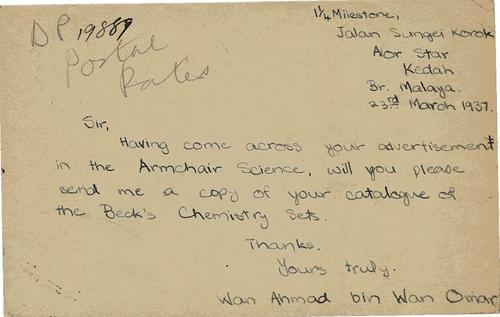 DP 19889
Postal
Rates
1¼ Milestone,
Jalan Sungei Korok
Alor Star
Kedah
Br. Malaya.
23rd March 1937.
Sir,
Having come across your advertisement
in the Armchair Science, will you please
send me a copy of your catalogue of
the Beck's Chemistry Sets.
Thanks.
Yours truly.
Wan Ahmad bin Wan Omar